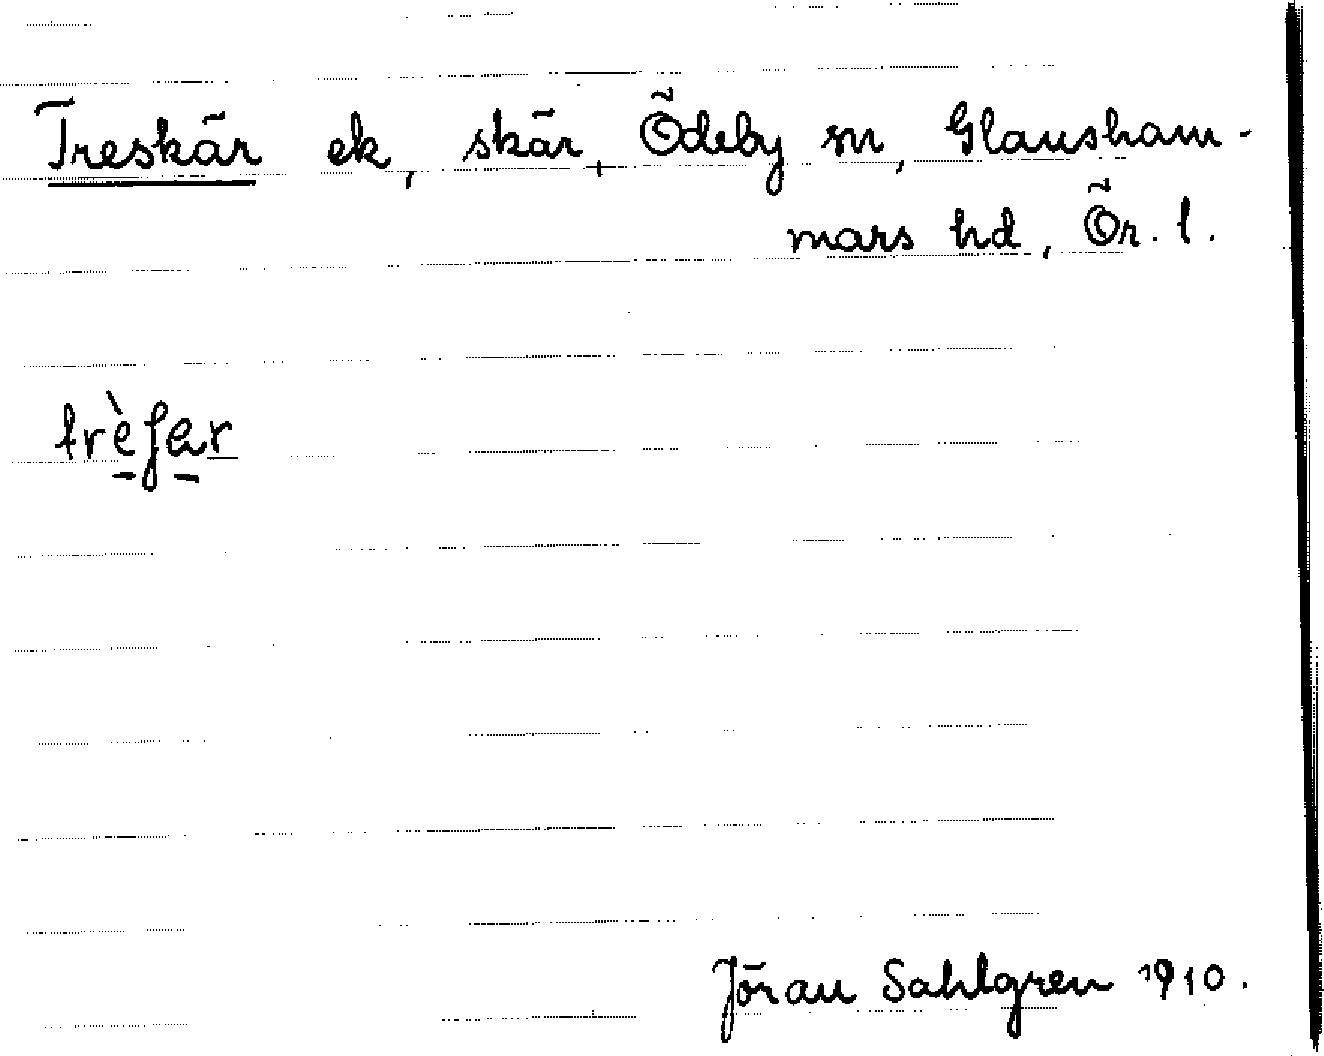 Treskär ek, skär, Ödeby sn, Glansham-
mars hd, Ör. l.
trèʃær
Jöran Sahlgren 1910.